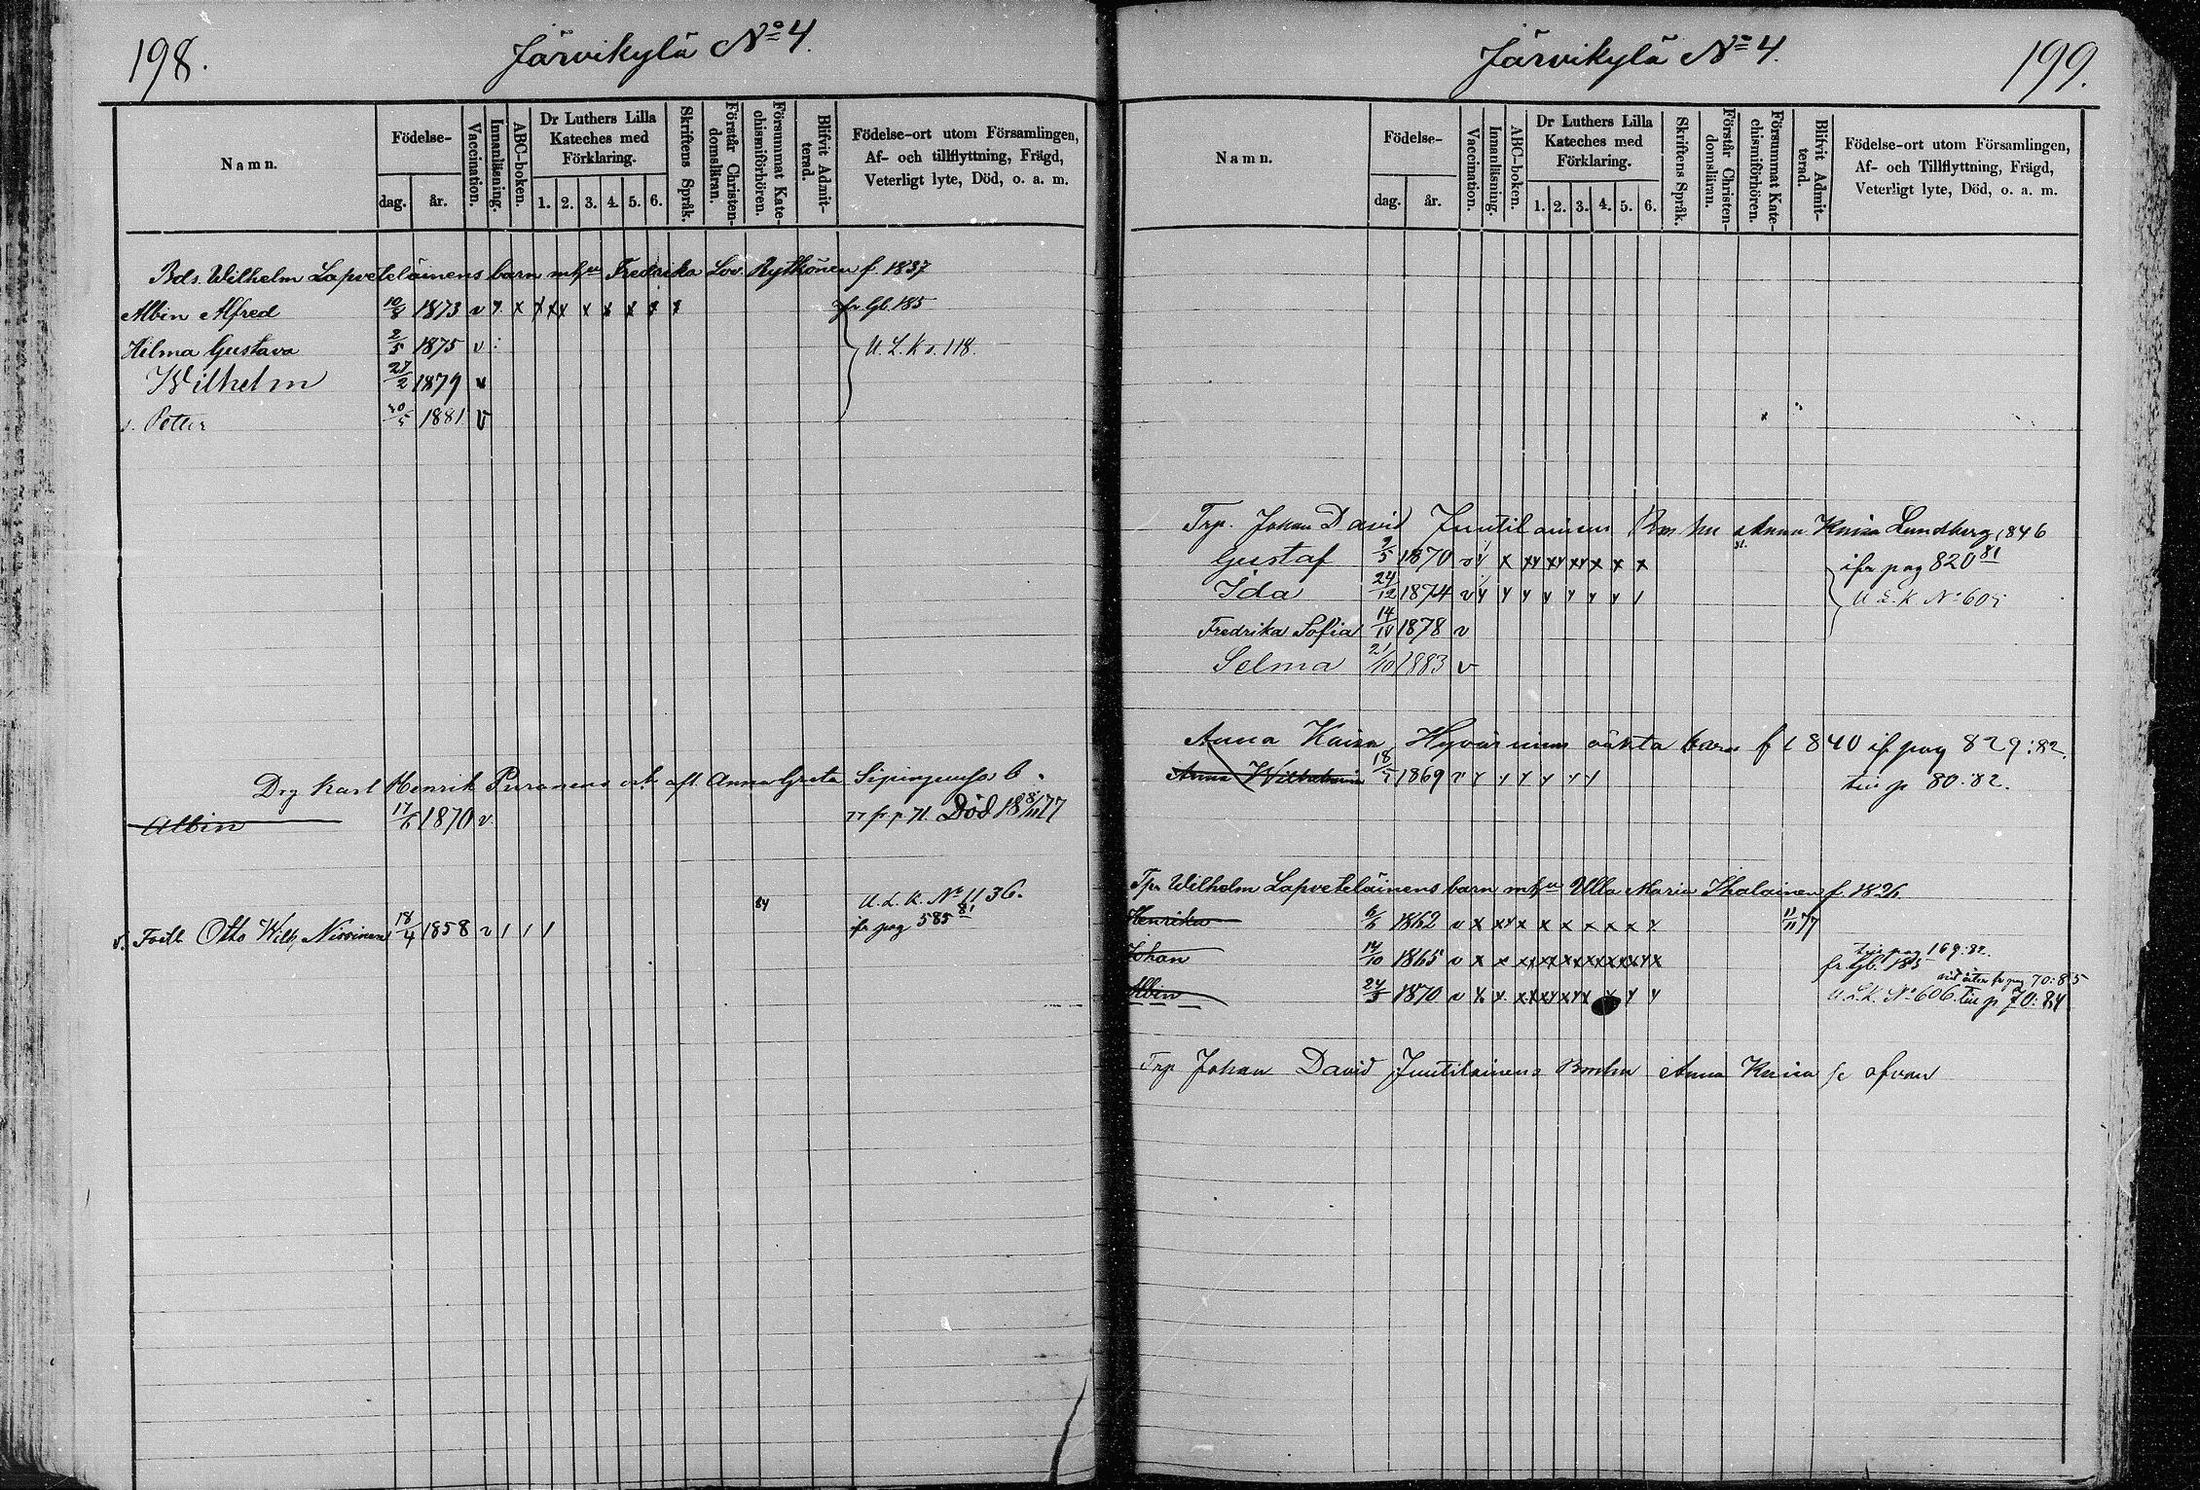 198.
Järvikylä No 4.
Namn.
Födelse-
dag.
år.
Vaccination.
Innanläsning.
ABC-boken.
Dr Luthers Lilla
Kateches med
Förklaring.
1. 2. 3. 4. 5. 6.
Skriftens Språk.
Förstår Christen-
domsläran.
Försummat Kate-
chismiförhören.
Blifvit Admit-
terad.
Födelse-ort utom Församlingen,
Af- och tillflyttning, Frägd,
Veterligt lyte, Död, o. a. m.
Bds. Wilhelm Lapveteläinens barn mhu Fredrika Lov. Rytkönen f. 1837
Albin Alfred 1873 v x x x x x x x x x x fr Gb. 185
Hilma Gustava 2/5 1875 v U. L. K. 118.
Wilhelm 27/2 1879 v
Petter 1881 v
Drg Karl Henrik Puranens och afl. Anna Greta b.
Albin 17/6 1870 v. fr p 71. Död 18 8/11 77
84 U. L. K. No 1136.
Otto Wilh. Nissinen 18/4 1858 v 1 1 1 ifr pag 585 81
Järvikylä No 4.
199.
Namn.
Födelse-
dag.
år.
Vaccination.
Innanläsning.
ABC-boken.
Dr Luthers Lilla
Kateches med
Förklaring.
1. 2. 3. 4. 5. 6.
Skriftens Språk.
Förstår Christen-
domsläran.
Försummat Kate-
chismiförhören.
Blifvit Admit-
terad.
Födelse-ort utom Församlingen,
Af- och Tillflyttning, Frägd,
Veterligt lyte, Död, o. a. m.
Trp. Johan David Juutilainens Bn hu Anna Kaisa Lundberg 1846
Gustaf 9/5 1870 v y x xy xy xy x x x ifr pag 820 81
Ida 24/12 1874 v y y y y y y y 1 U. L. K No 605
Fredrika Sofia 14/IV 1878 v
Selma 21/10 1883 v
Anna Kaisa Hyvärinens oäkta barn f 1840 if pag 829:82.
Anna Wilhelmina 18/5 1869 v y y y y y y till p 80:82.
Tpr Wilhelm Lapveteläinens barn mhu Ulla Maria Ihalainen f. 1826
Henrika 6/6 1862 v x xy x x x x x x y 11/11 77
Johan 14/10 1865 v x x till pag 169:82.
fr Gb. 185
Albin 24/3 1870 v pag 70:85
U. L. K. No 606. till p 70:84
Trp Johan David Juutilainens Bmhu Anna Kaisa se ofvan